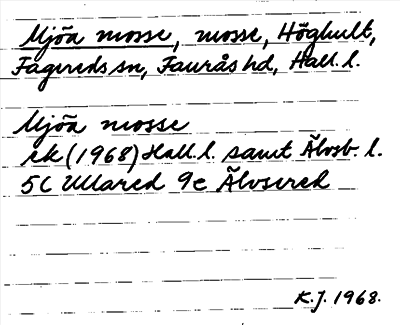 Mjöa mosse, mosse, Höghult,
Fagereds sn, Faurås hd, Hall. l.
Mjöa mosse
ek (1968) Hall. l. samt Älvsb. l.
5C Ullared 9e Älvsered
K.J. 1968.